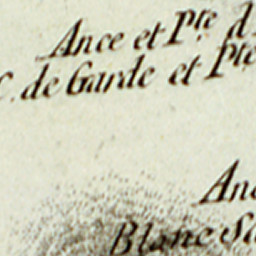 Ance et Pte d
C. de Garde et Pte
An
Blanc Sa